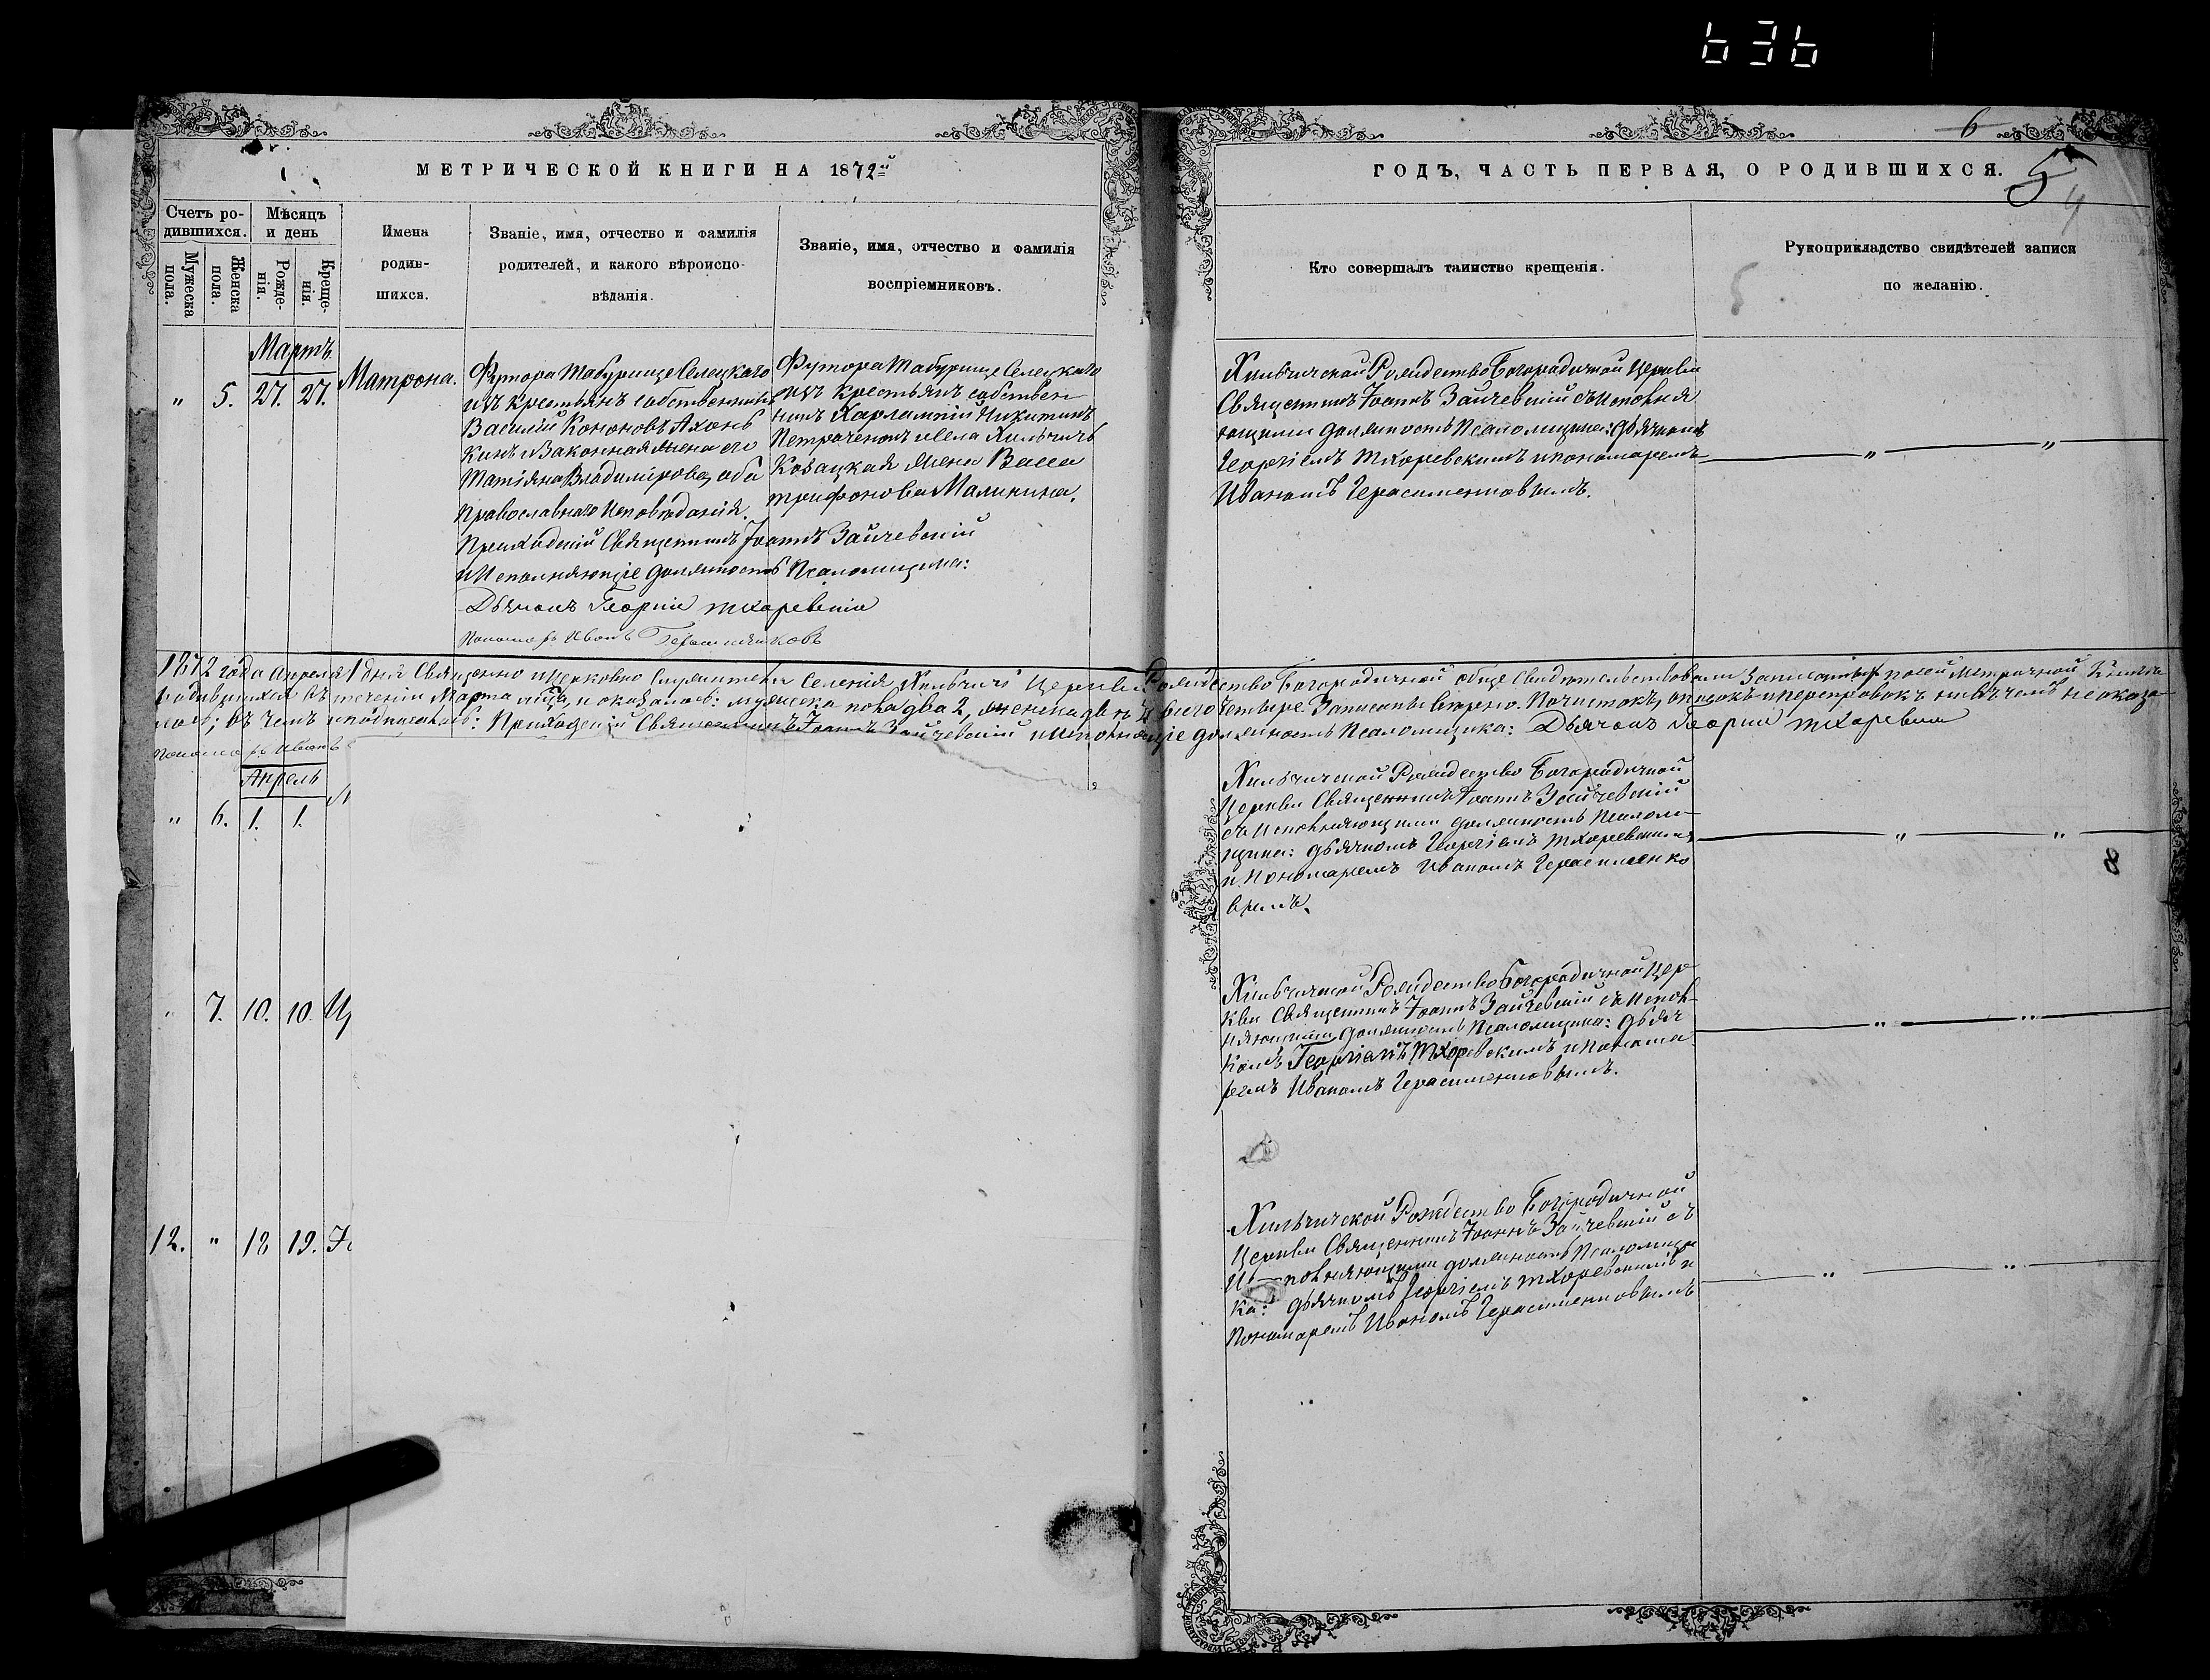 636
6
МЕТРИЧЕСКОЙ КНИГИ НА 1872й
ГОДЪ, ЧАСТЬ ПЕРВАЯ, О РОДИВШИХСЯ.
5
4
Счетъ ро-
дившихся.
Мужеска
пола.
Женска
пола.
Мѣсяцъ
и день
Рожде-
нія.
Креще-
нія.
Имена
родив-
шихся.
Званіе, имя, отчество и фамилія
родителей, и какого вѣроиспо-
вѣданія.
Званіе, имя, отчество и фамилія
воспріемниковъ.
Кто совершалъ таинство крещенія.
Рукоприкладство свидѣтелей записи
по желанію.
Мартъ
" 5. 27. 27. Матрона.
Хутора Селецкаго
изъ крестьянъ собственникъ
Василій Кононовъ
и законная жена его
Татіяна Владимірова, оба
православнаго исповѣданія.
Хутора Селецкаго
изъ крестьянъ собствен
никъ Харлампій Никитинъ
и села Хильчичь
Козацкая жена Васса
Трифонова Малинина.
Приходскій Священникъ Іоаннъ Зайчевскій
и Исполняющіе должность Псаломщика:
Дьячокъ Георгій Тхоревскій
Пономарь Иванъ
Хильчичской Рождество Богородичной Церкви
Священникъ Іоаннъ Зайчевскій съ Исполня
ющими должность Псаломщика: Дьячкомъ
Георгіемъ Тхоревскимъ и пономаремъ
Иваномъ Герасименковымъ.
" "
1872 года Апреля 1 дня Священно и церковно служители селенія Хильчичь Церкви Рождество Богородичной обще свидѣтельствовали записанныхъ по сей Метричной Книгѣ
родившихся въ теченіи Марта м-ца, и оказалось: мужеска пола два 2, женска двѣ 2 всего четыре. Записаны вѣрно. Почистокъ, описокъ и переправокъ ни въ чемъ не оказа-
лось; въ чемъ и подписались: Приходскій Священникъ Іоаннъ Зайчевскій и Исполняющіе должность Псаломщика: Дьячокъ Георгій Тхоревскій
Пономарь Иванъ
Апрель
" 6. 1. 1.
Хильчичской Рождество Богородичной
Церкви Священникъ Іоаннъ Зайчевскій
съ Исполняющими должность Псалом-
щика: дьячкомъ Георгіемъ Тхоревскимъ
и Пономаремъ Иваномъ Герасименко
вымъ.
" "
8
" 7. 10. 10.
Хильчичской Рождество Богородичной Цер-
кви Священникъ Іоаннъ Зайчевскій съ Испол-
няющими должность Псаломщика: дьяч
комъ Георгіемъ Тхоревскимъ и понома
ремъ Иваномъ Герасименковымъ.
" "
12. " 18 19.
Хильчичской Рождество Богородичной
Церкви Священникъ Іоаннъ Зайчевскій съ
Исполняющими должность Псаломщи
ка: дьячкомъ Георгіемъ Тхоревскимъ и
Пономаремъ Иваномъ Герасименковымъ
" "